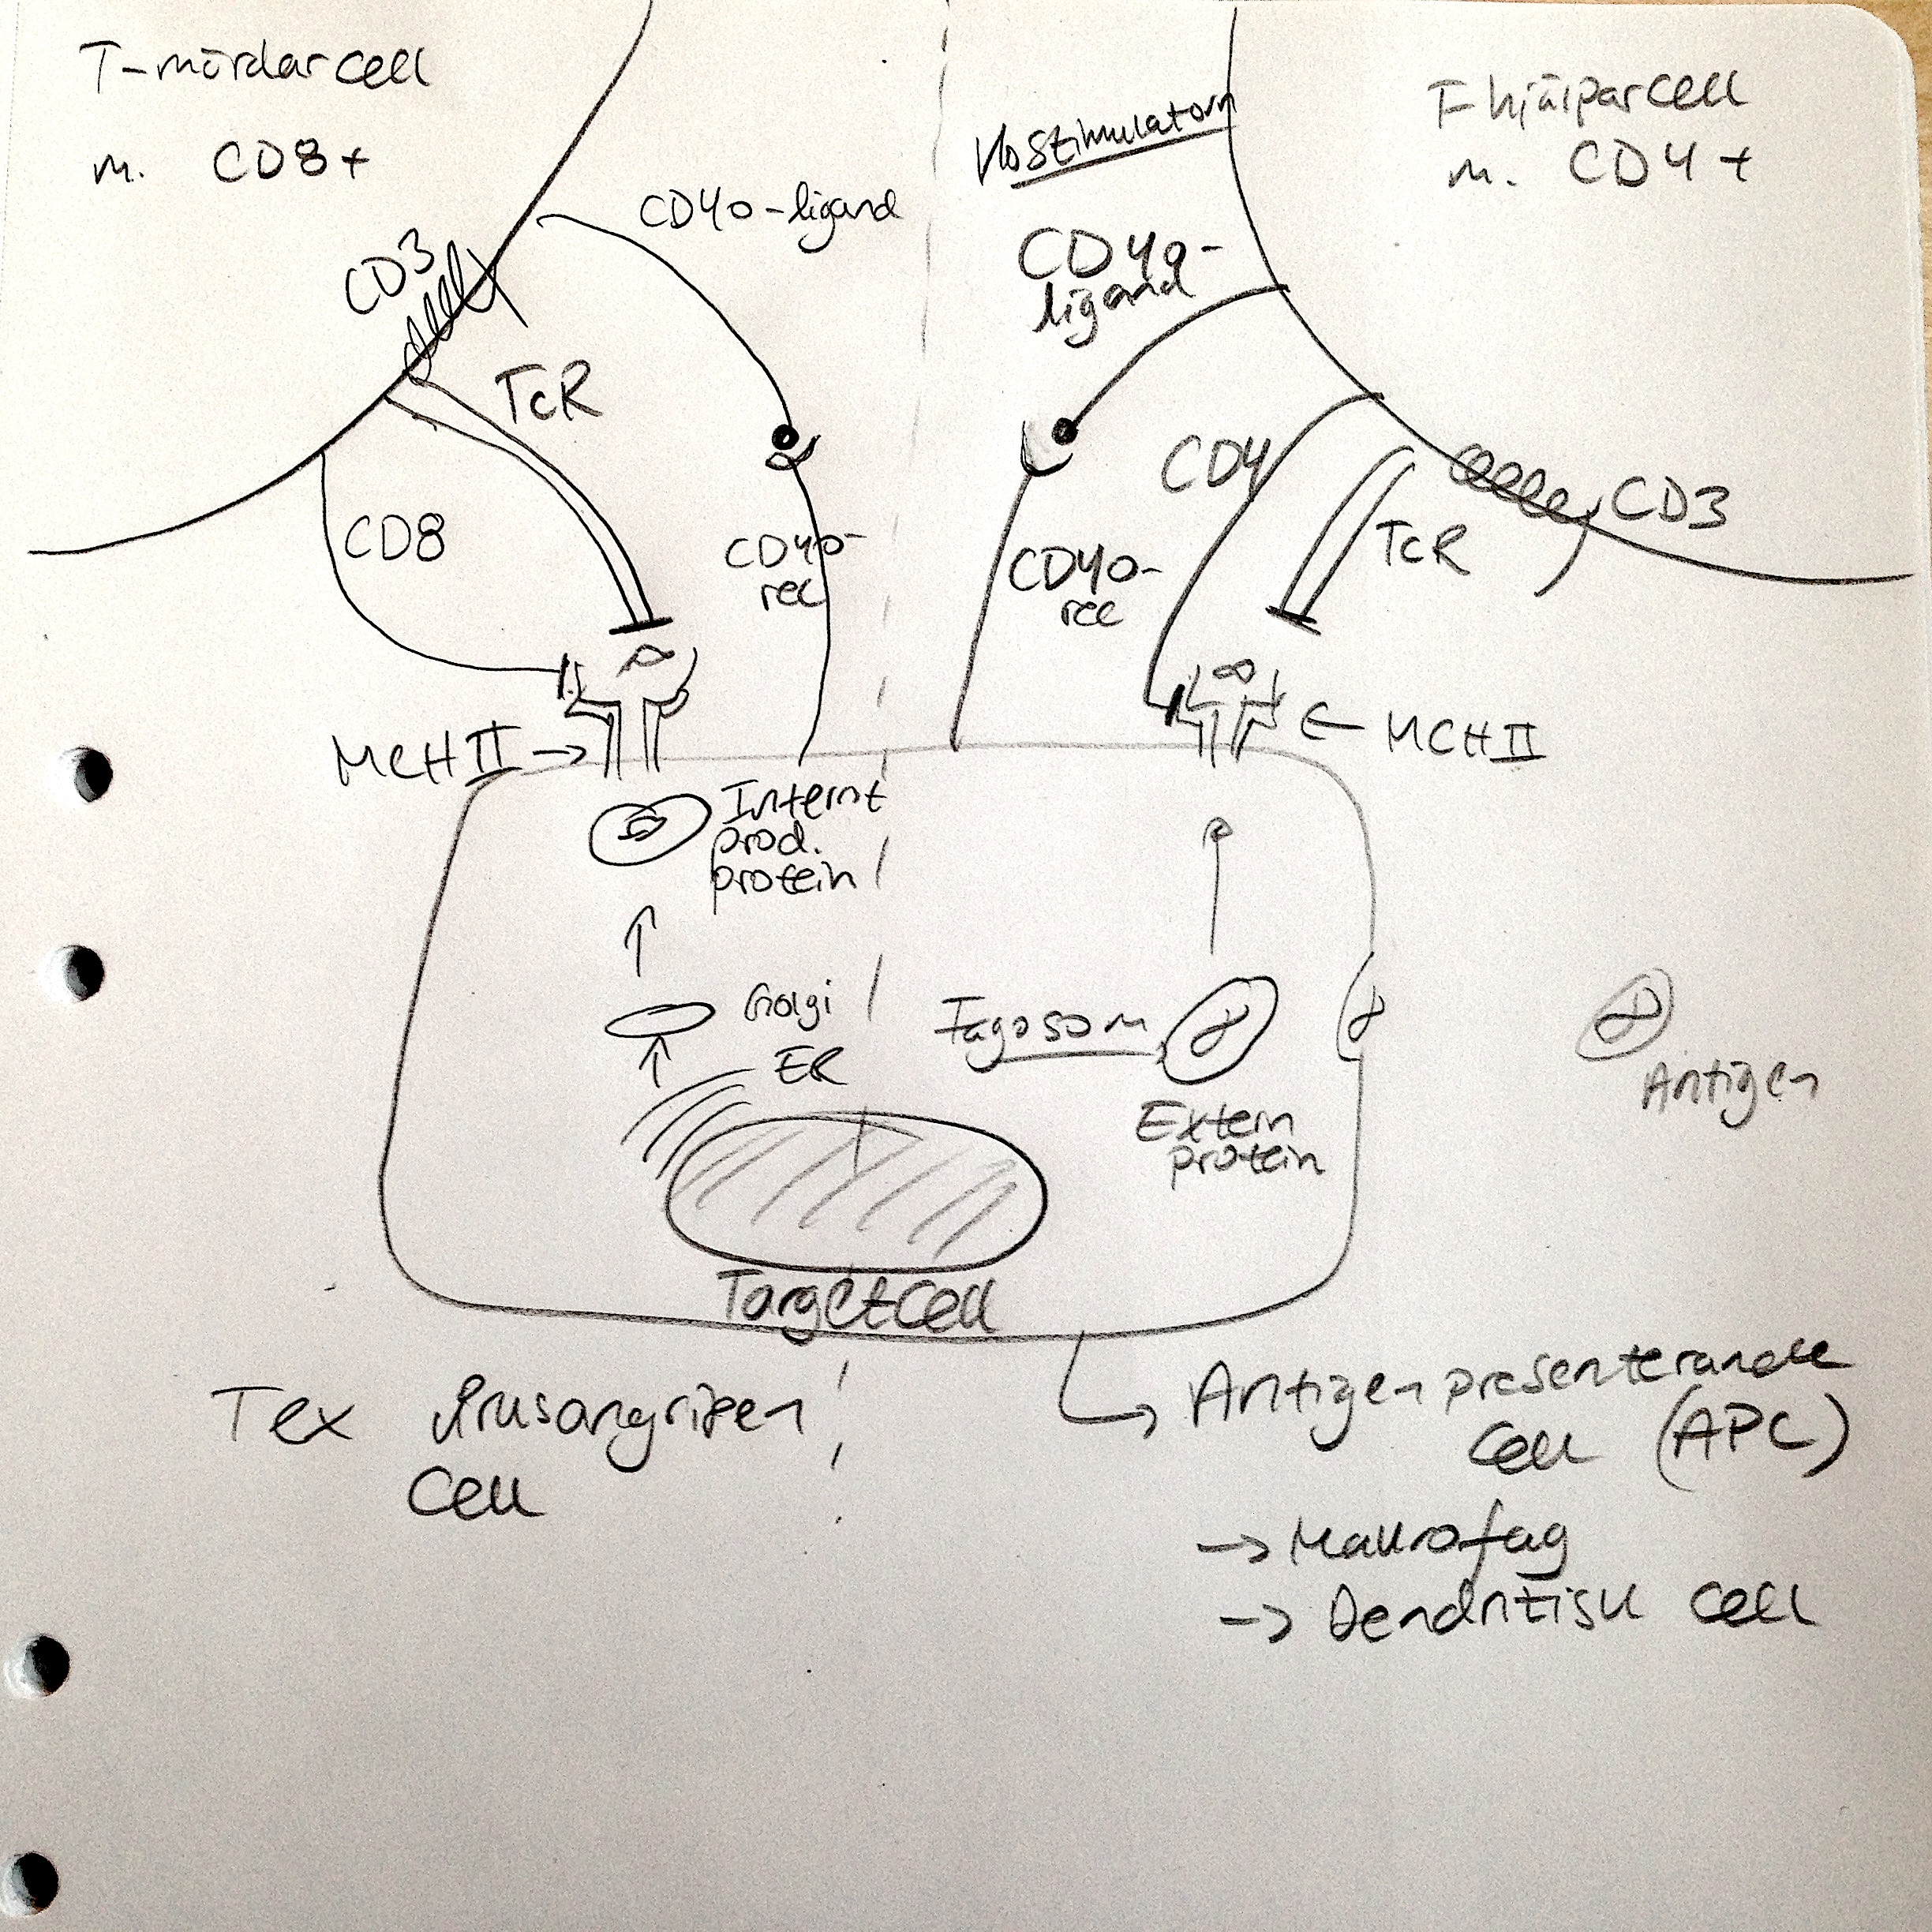 T-mördarcell
m. CD8+
T-hjälparcell
m. CD4+
Kostimulatorn
CD40-ligand
CD40-
ligand
CD3
TcR
CD8
CD40-
rec
CD4
TcR
CD3
CD40-
rec
MCH II →
← MCH II
Internt
prod.
protein
Golgi
ER
Fagosom
Extern
protein
Antigen
Targetcell
Tex Virusangripen
Cell
Antigenpresenterande
cell (APC)
→ Makrofag
→ Dendritisk cell